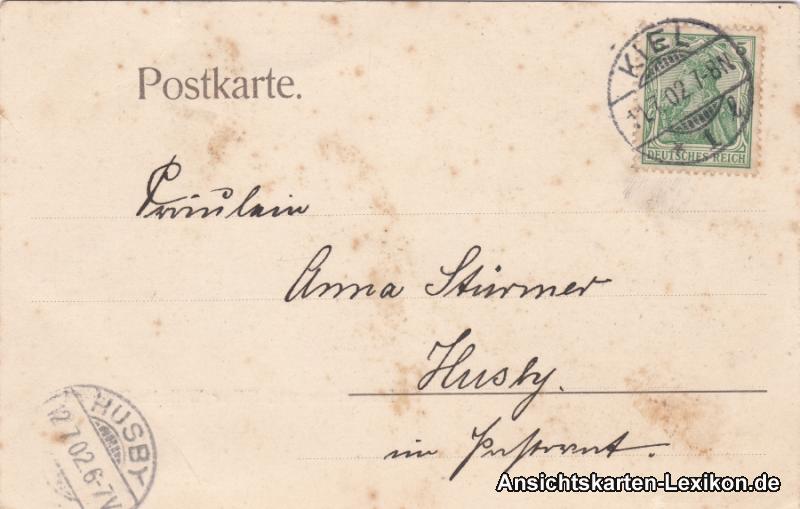 Postkarte.
KIEL
7.02.7-8N
DEUTSCHES REICH
Fräulein
Anna Stürmer
Husby.
im Pastorat.
HUSBY
12.7.02.6-7V
Ansichtskarten-Lexikon.de